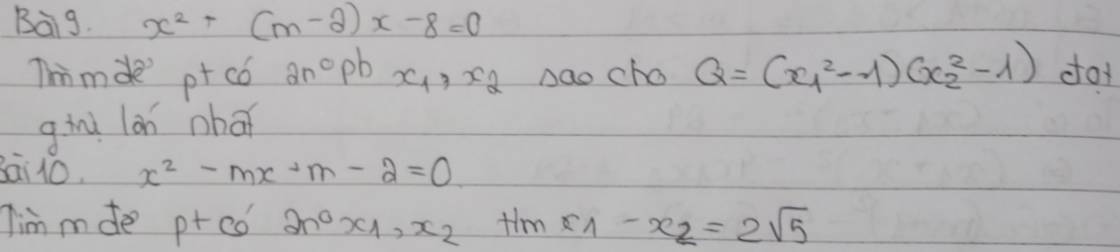 Bài 9. x² + (m-2)x - 8 = 0
Tìm m để pt có 2n⁰pb x₁, x₂ sao cho Q = (x₁² - 1)(x₂² - 1) đạt
gtrị lớn nhất
Bài 10. x² - mx + m - 2 = 0
Tìm m để pt có 2n⁰ x₁, x₂ t/m x₁ - x₂ = 2√5